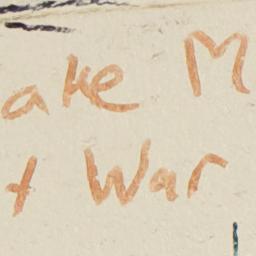 ake M
t War